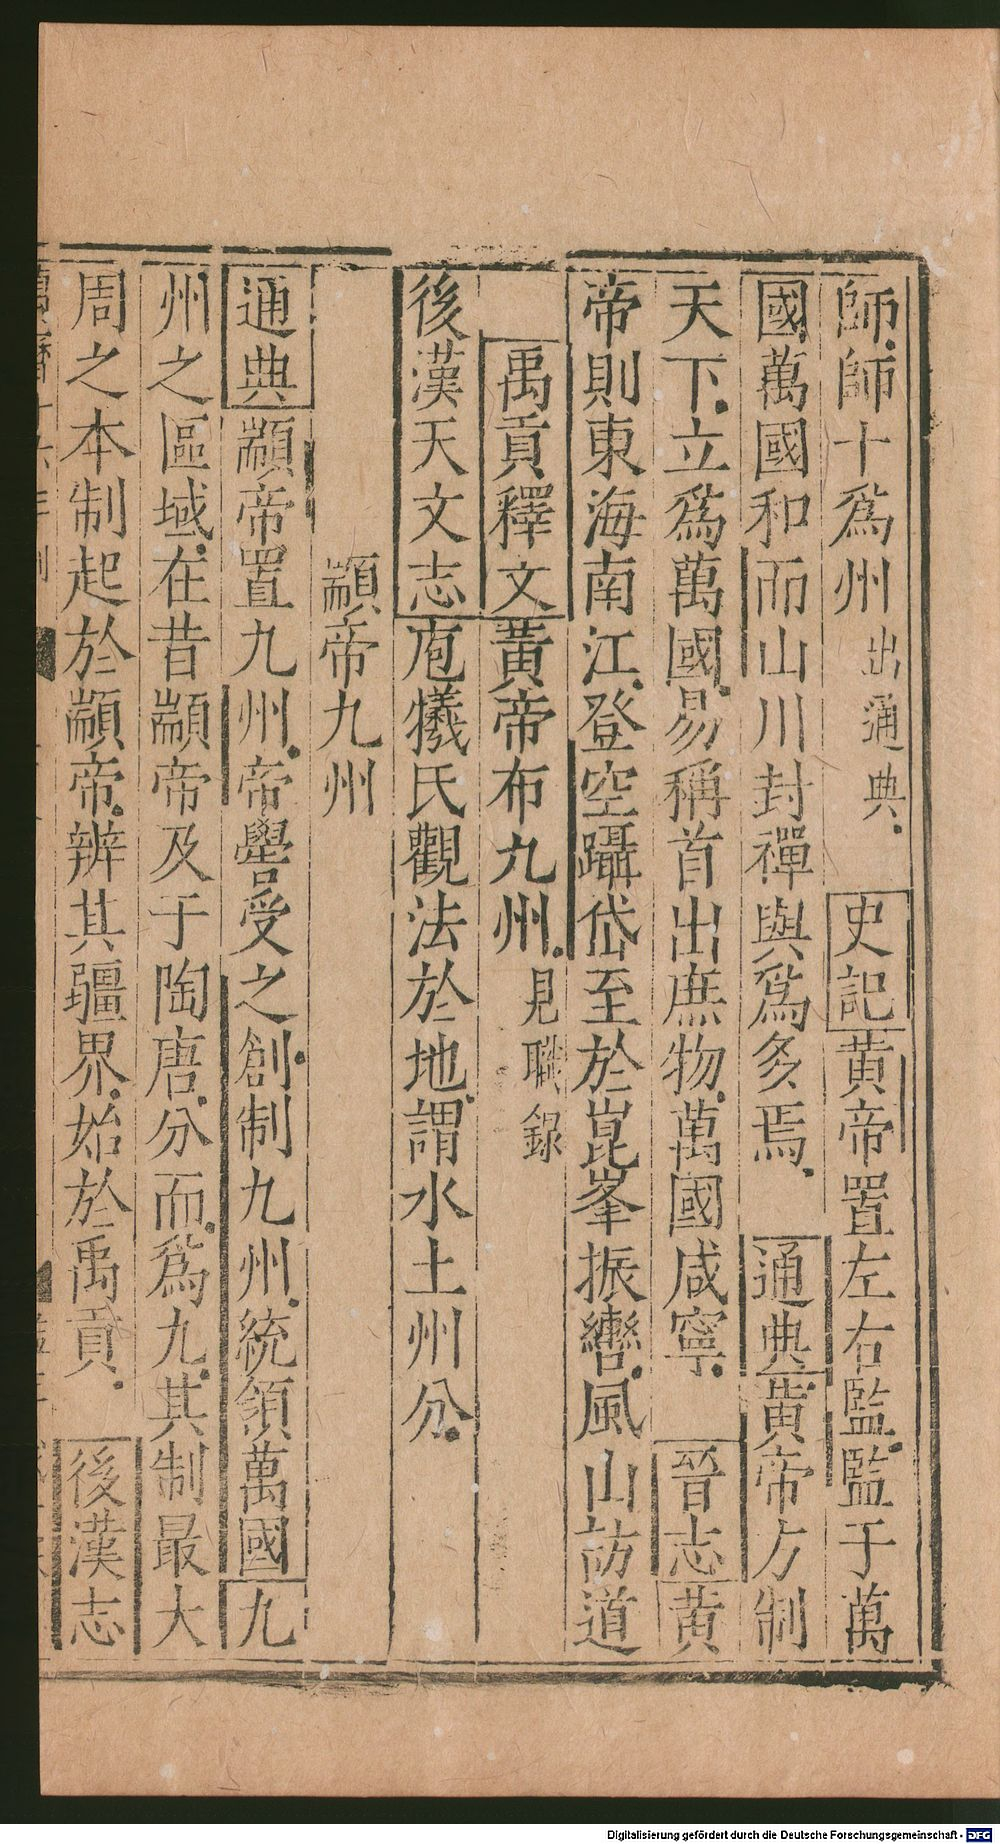 師師十爲州出通典史記黃帝置左右監監于萬
國萬國和而山川封禪與爲多焉通典黃帝方制
天下立爲萬國易稱首出庶物萬國咸寧晉志黃
帝則東海南江登空躡岱至於崑峯振轡風山訪道
禹貢釋文黃帝布九州見職錄
後漢天文志庖犧氏觀法於地謂水土州分
顓帝九州
通典顓帝置九州帝嚳受之創制九州統領萬國九
州之區域在昔顓帝及于陶唐分而爲九其制最大
周之本制起於顓帝辨其疆界始於禹貢後漢志
Digitalisierung gefördert durch die Deutsche Forschungsgemeinschaft - DFG